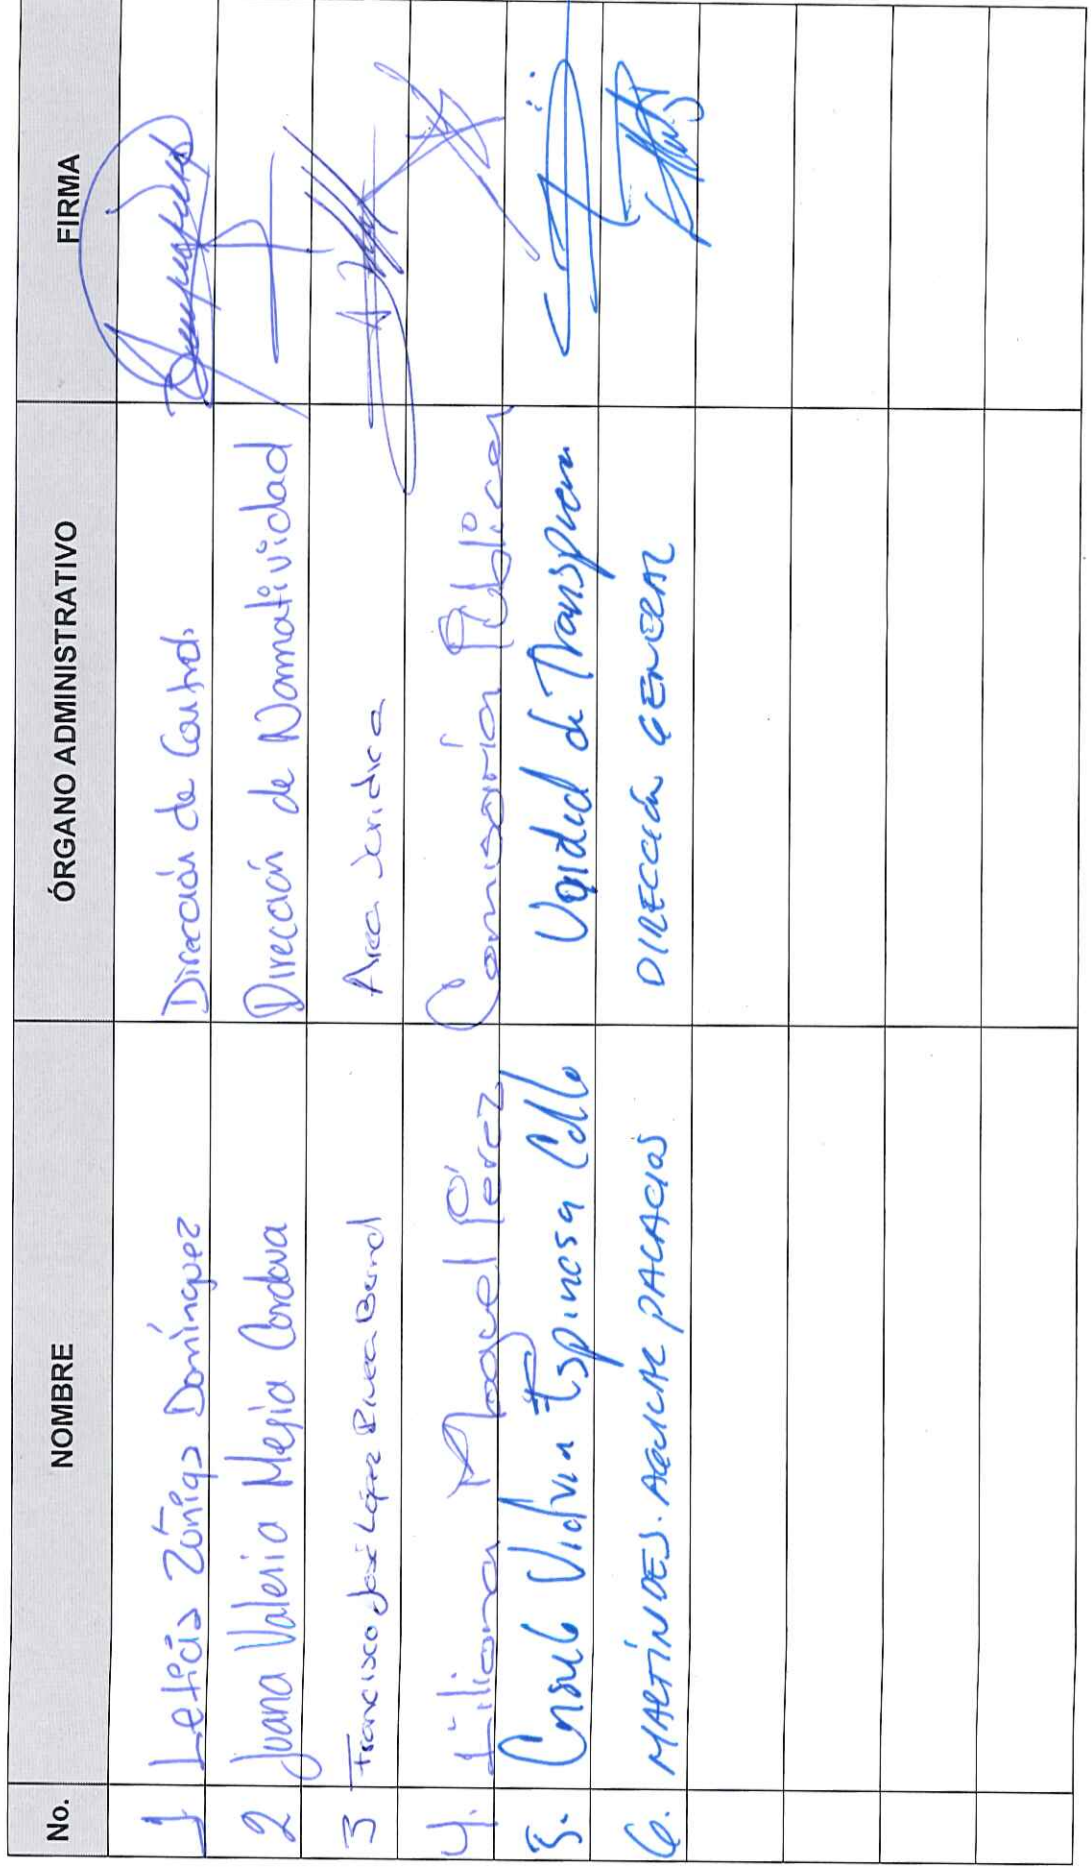 No. NOMBRE ÓRGANO ADMINISTRATIVO FIRMA
1 Leticia Zúñiga Domínguez Dirección de Control.
2 Juana Valeria Mejia Cordova Dirección de Normatividad
3 Francisco José López Area Juridica
4. Liliana Maguel Pérez Comisaría Pública
5. Espinosa Unidad de
6. MARTÍN DE J. AGUILAR PALACIOS DIRECCIÓN GENERAL